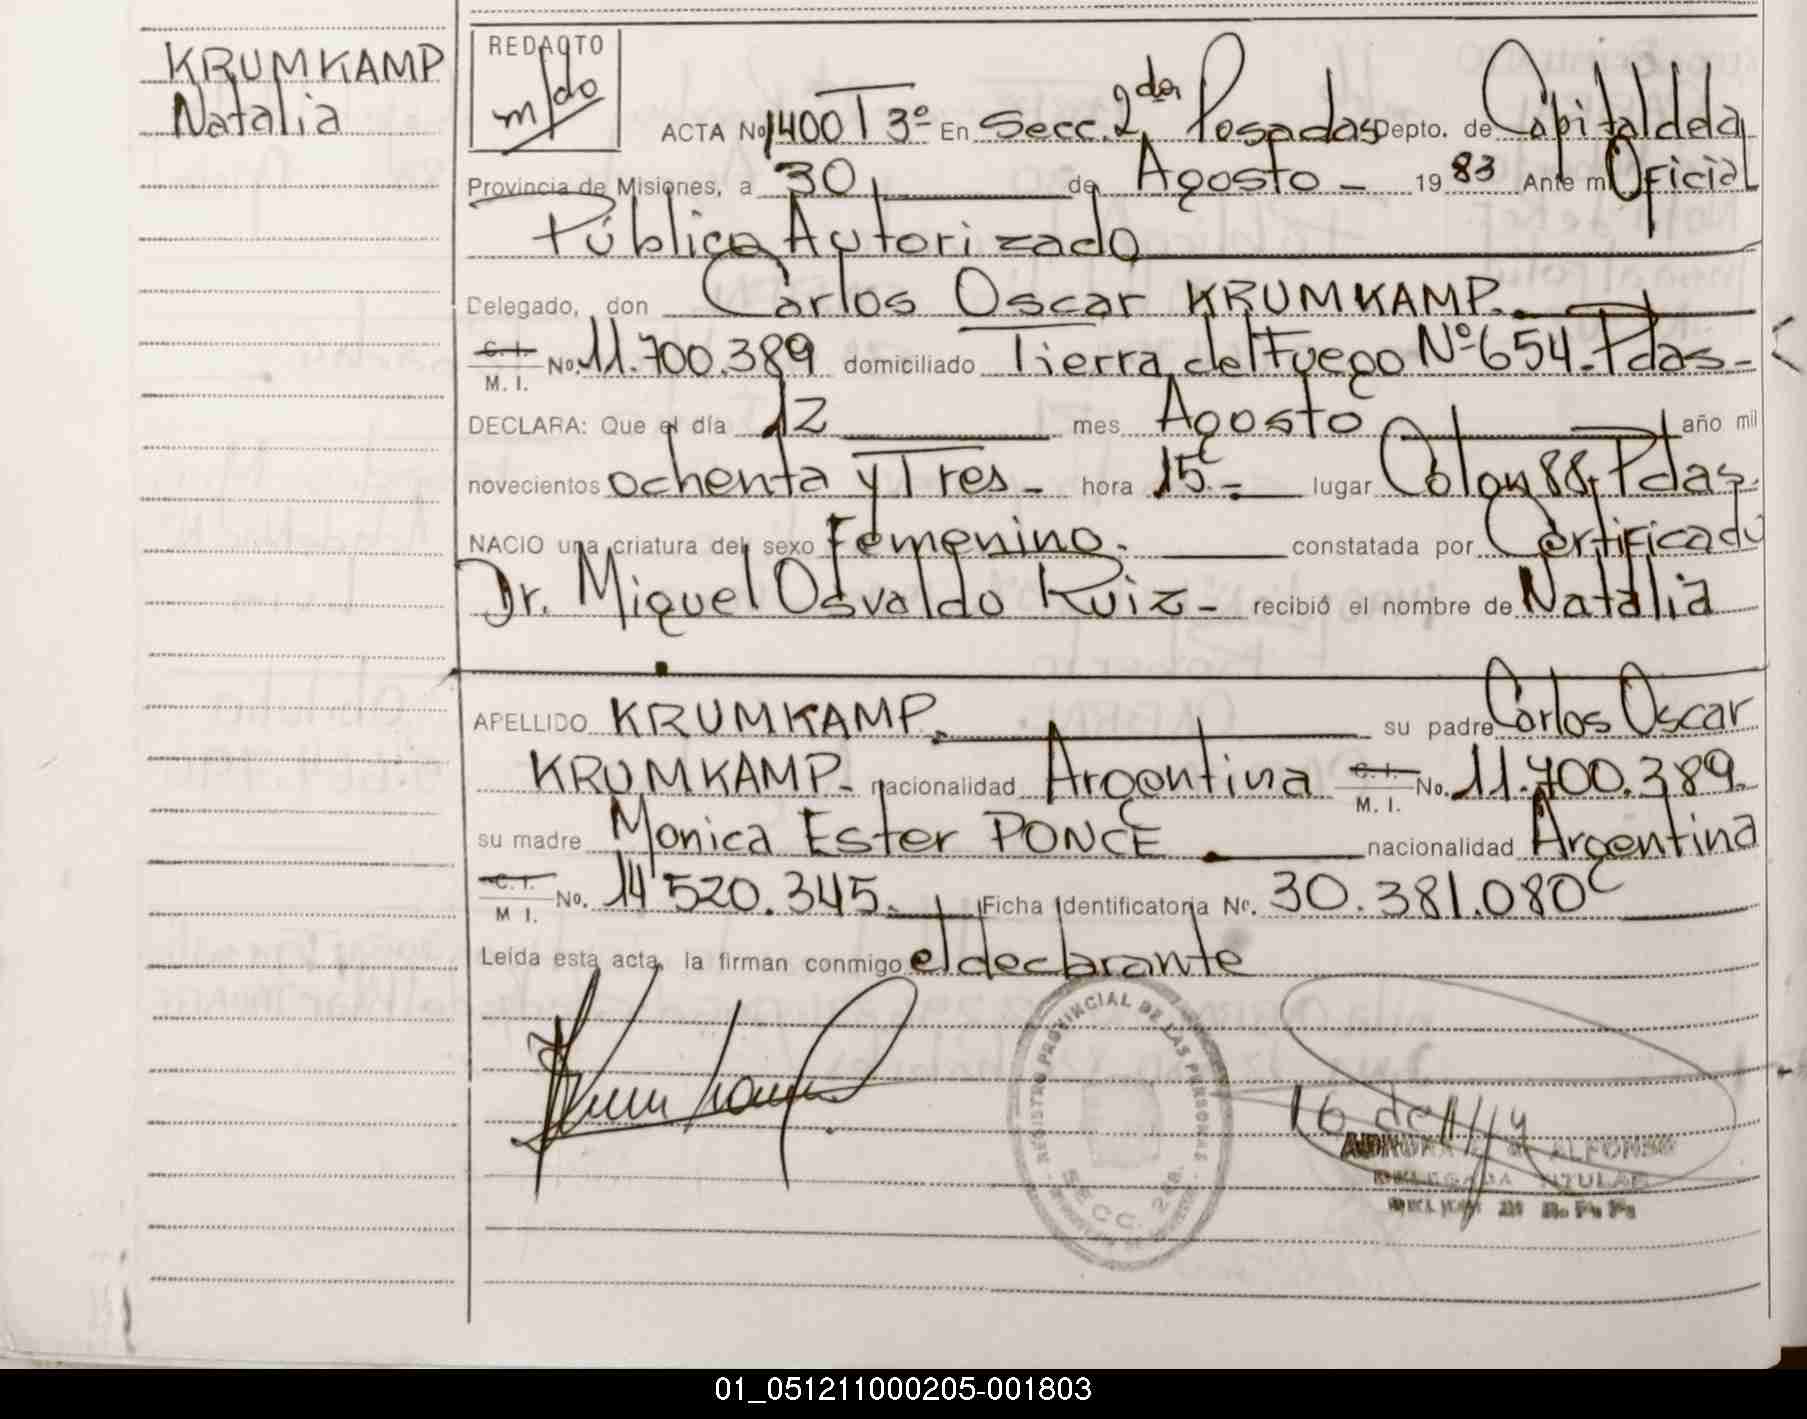 KRUMKAMP
Natalia
REDACTO
ACTA No 1400 T 3º En Secc. 2da Posadas Depto. de Capital de la
Provincia de Misiones, a 30 de Agosto - 1983 Ante mi Oficial
Público Autorizado
Delegado, don Carlos Oscar KRUMKAMP.
C. I.
M. I. No. 11.700.389 domiciliado Tierra del Fuego Nº 654. Pdas-
DECLARA: Que el día 12 mes Agosto año mil
novecientos ochenta y Tres - hora 15 - lugar Colon 88, Pdas.
NACIO una criatura del sexo Femenino. constatada por Certificado
Dr. Miguel Osvaldo Ruiz - recibió el nombre de Natalia
APELLIDO KRUMKAMP su padre Carlos Oscar
KRUMKAMP - nacionalidad Argentina C. I.
M. I. No. 11.700.389.
su madre Monica Ester PONCE nacionalidad Argentina
C. I.
M. I. No. 14.520.345. Ficha Identificatoria Nº. 30.381.080
Leída esta acta, la firman conmigo el declarante
REGISTRO PROVINCIAL DE LAS PERSONAS
SECC. 2da.
ALFONSO
DELEGADA TITULAR
01_051211000205-001803